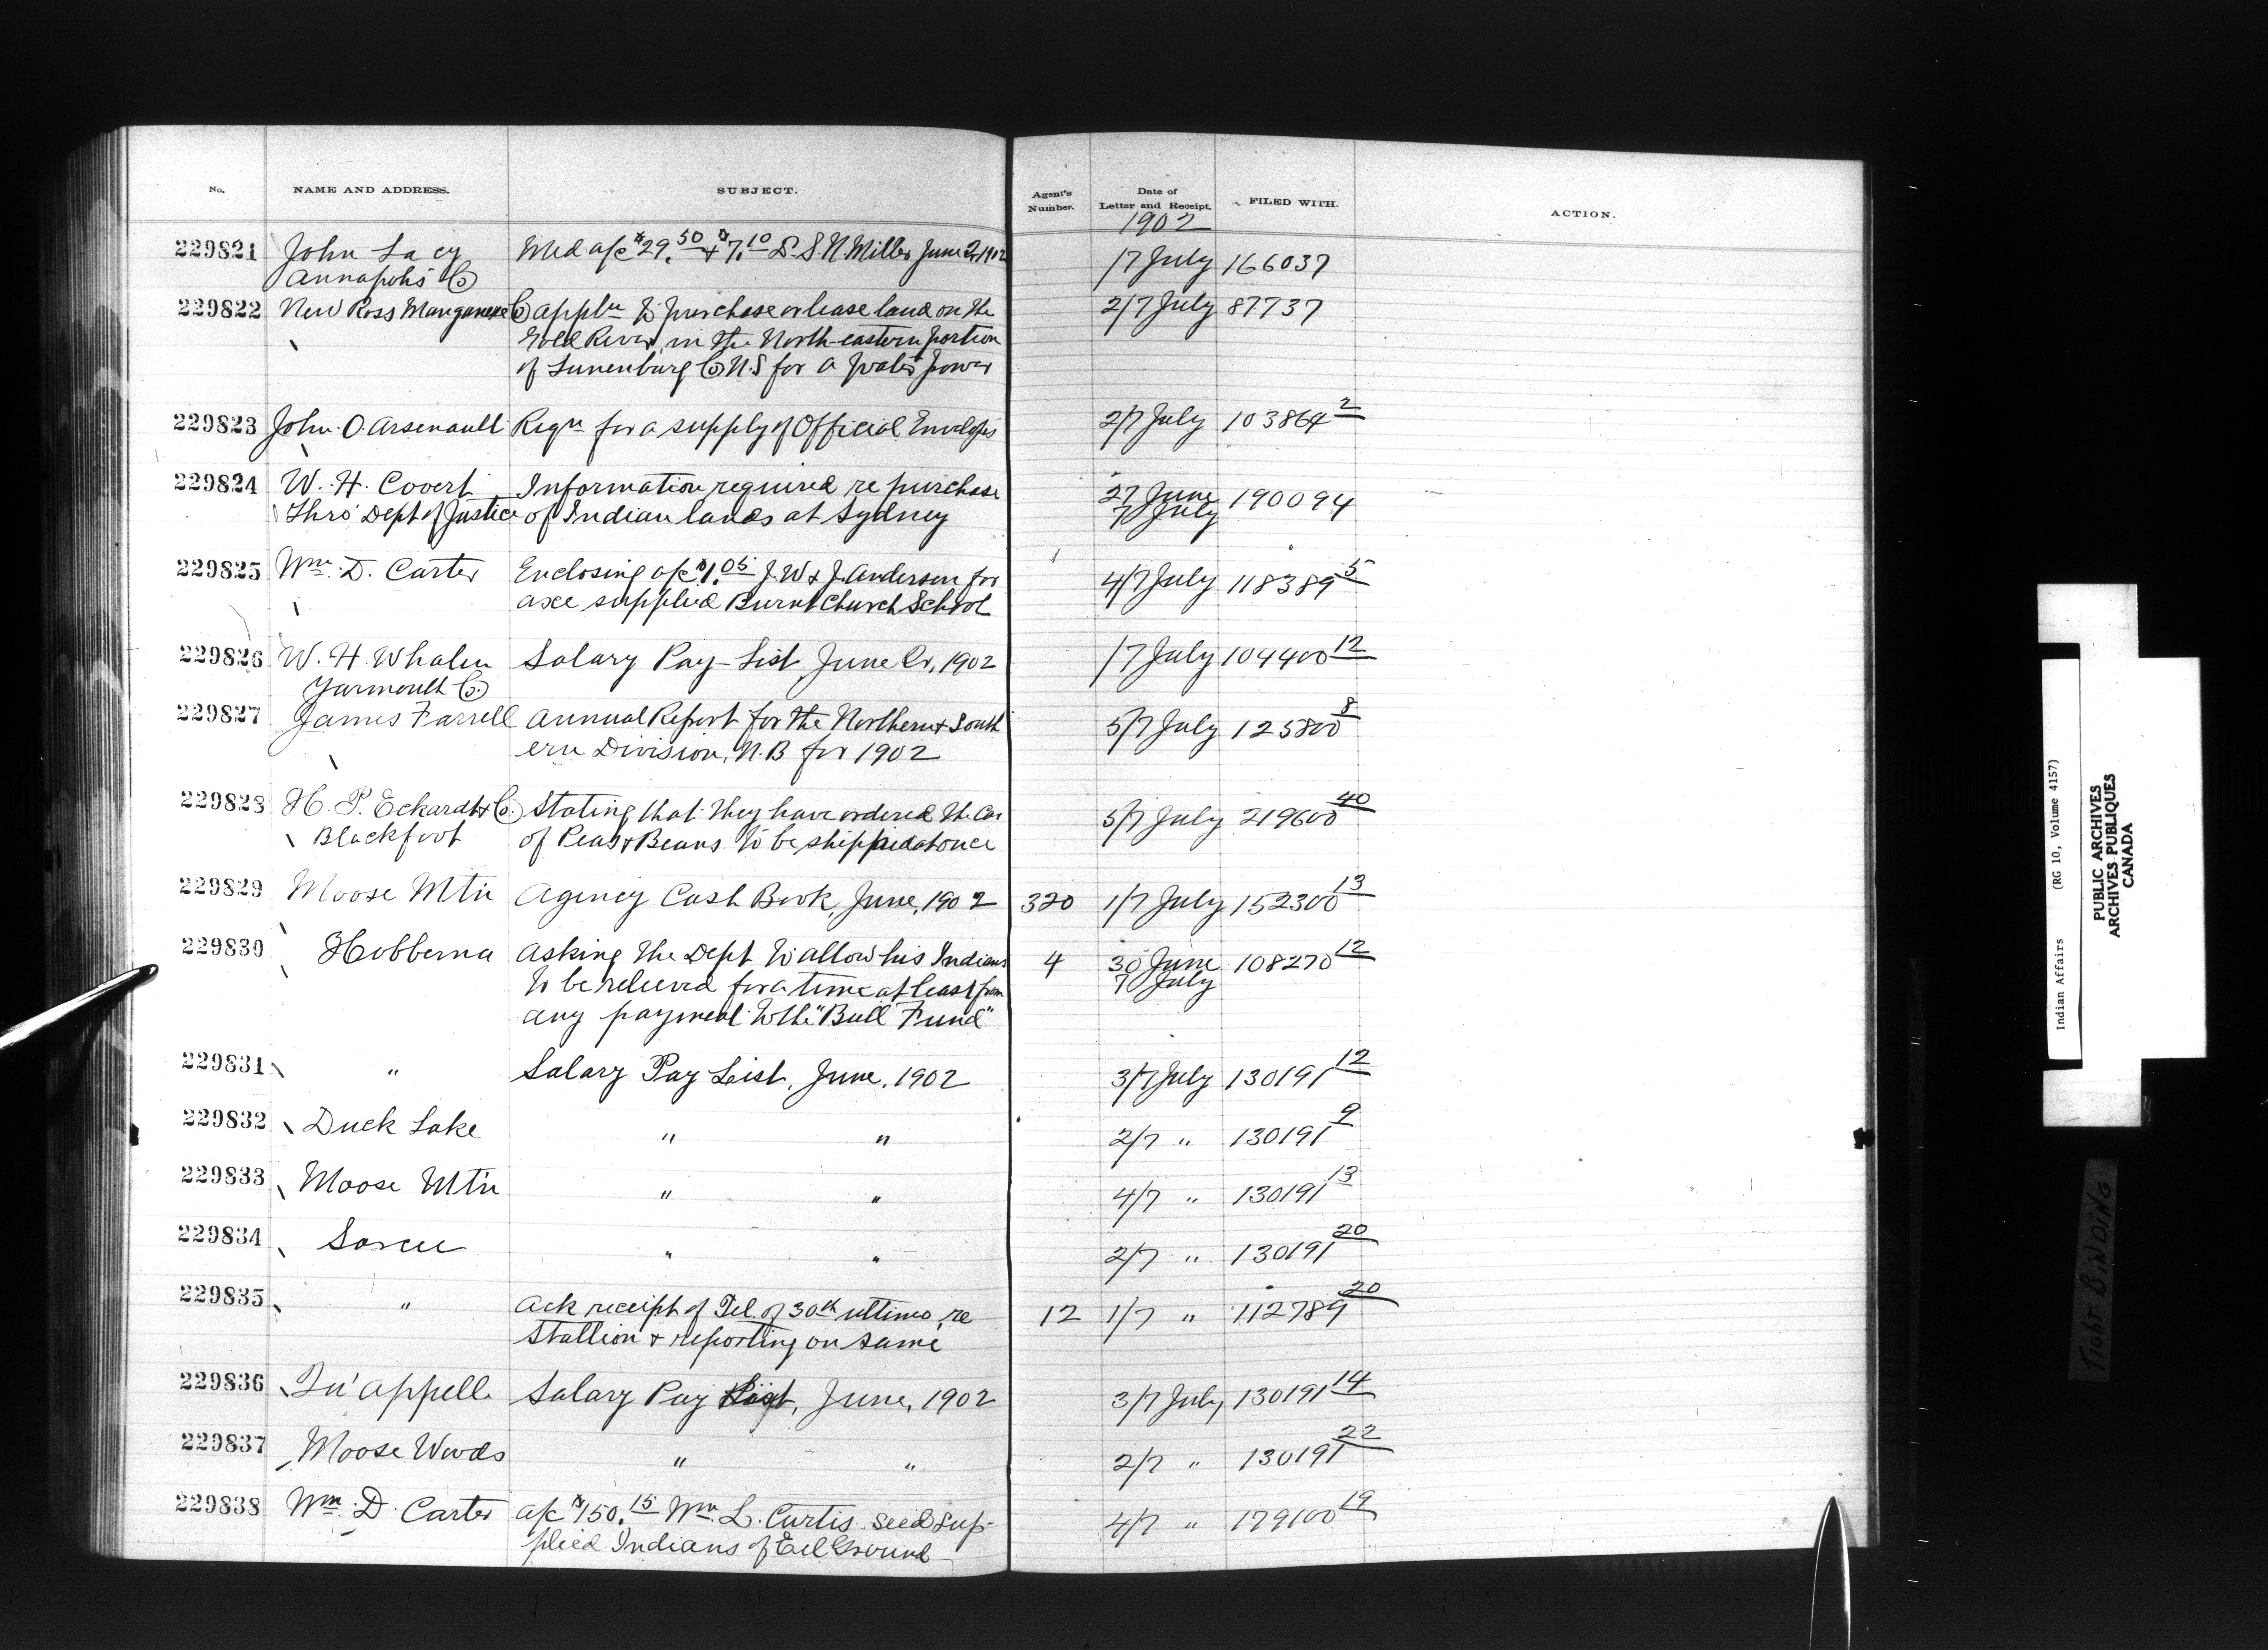 No. NAME AND ADDRESS. SUBJECT. Agent's Number. Date of Letter and Receipt. FILED WITH. ACTION.
1902
229821 John Lacy Med a/c $29.50 + $7.10 L. S. N. Miller June 2, 1902 1/7 July 166037
Annapolis Co
229822 New Ross Manganese Co appln to purchase or lease land on the 2/7 July 87737
Gold River, in the North-eastern portion
of Lunenburg Co N.S for a water power
229823 John O. Arsenault Reqn for a supply of Official Envelopes 2/7 July 103864 2
229824 W. H. Covert Information required re purchase 27 June 190094
Thro' Dept of Justice of Indian lands at Sydney 7 July
229825 Wm. D. Carter Enclosing a/c $1.05 J. W & J. Anderson for 4/7 July 118389 5
axe supplied Burnt Church School
229826 W. H. Whalen Salary Pay-List, June Qr, 1902 1/7 July 104400 12
Yarmouth Co.
229827 James Farrell Annual Report for the Northern & South 5/7 July 125800 8
ern Division, N.B for 1902
229828 H. P. Eckardt & Co. Stating that they have ordered the Car 5/7 July 219600 40
Blackfoot of Peas & Beans to be shipped at once
229829 Moose Mtn Agency Cash Book, June, 1902 320 1/7 July 152300 13
229830 Hobbema Asking the Dept to allow his Indians 4 30 June 108270 12
to be relieved for a time at least from 7 July
any payment to the "Bull Fund"
229831 " Salary Pay List, June, 1902 3/7 July 130191 12
229832 Duck Lake " " 2/7 " 130191 9
229833 Moose Mtn " " 4/7 " 130191 13
229834 Sarcee " " 2/7 " 130191 20
229835 " Ack receipt of Tel. of 30th ultimo, re 12 1/7 " 112789 20
Stallion & reporting on same
229836 Qu'appelle Salary Pay List, June, 1902 3/7 July 130191 14
229837 Moose Woods " " 2/7 " 130191 22
229838 Wm. D. Carter a/c $150.15 Wm. L. Curtis seed sup-
4/7 " 179100 19
plied Indians of Eel Ground
Indian Affairs (RG 10, Volume 4157)
PUBLIC ARCHIVES
ARCHIVES PUBLIQUES
CANADA
TIGHT BINDING